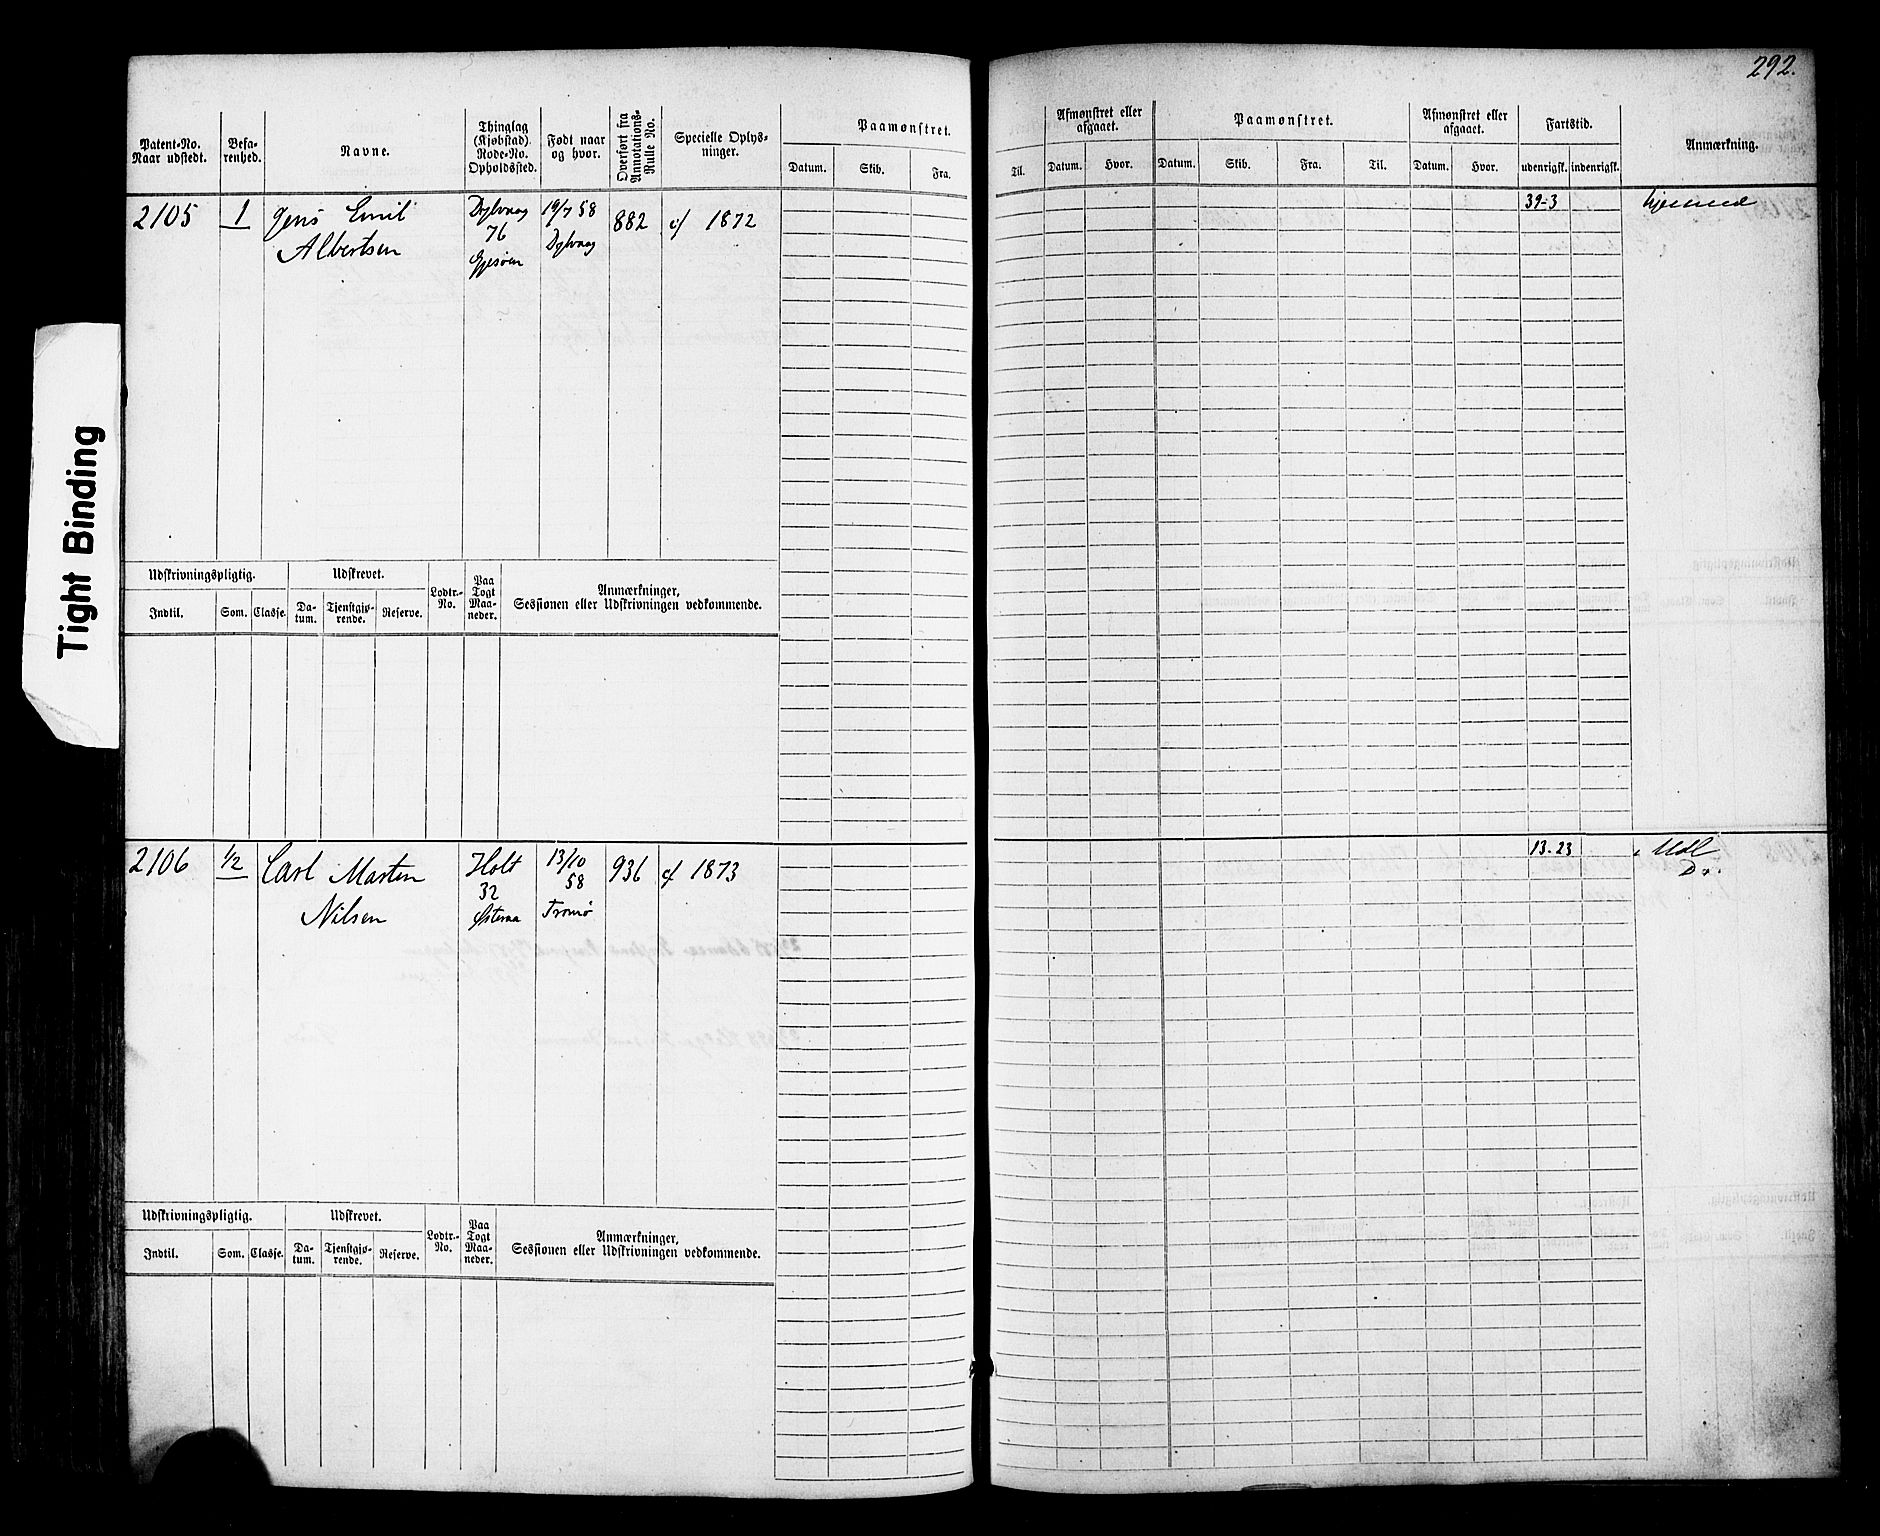 292.
Tight Binding
Patent-No. Naar udstedt.
Befarenhed.
Navne.
Thinglag (Kjøbstad) Rode-No. Opholdssted.
Født naar og hvor.
Overført fra Annotations-Rulle No.
Specielle Oplysninger.
Paamønstret.
Datum. Skib. Fra. Til.
Afmønstret eller afgaaet.
Datum. Hvor.
Paamønstret.
Datum. Skib. Fra. Til.
Afmønstret eller afgaaet.
Datum. Hvor.
Fartstid.
udenrigsk. indenrigsk.
Anmærkning.
2105 1 Jens Emil 19/7 58 882 1872 39-3 hjemme
Albertsen 76
Udskrivningspligtig. Udskrevet. Lodtr.-No. Paa Togt Maaneder. Anmærkninger,
Sessionen eller Udskrivningen vedkommende.
Indtil. Som. Classe. Datum. Tjenstgjørende. Reserve.
2106 1/2 Carl Marten Holt 13/10 936 1873 13-23 Udl
32 58 Do.
Nilsen Tromø
Udskrivningspligtig. Udskrevet. Lodtr.-No. Paa Togt Maaneder. Anmærkninger,
Sessionen eller Udskrivningen vedkommende.
Indtil. Som. Classe. Datum. Tjenstgjørende. Reserve.